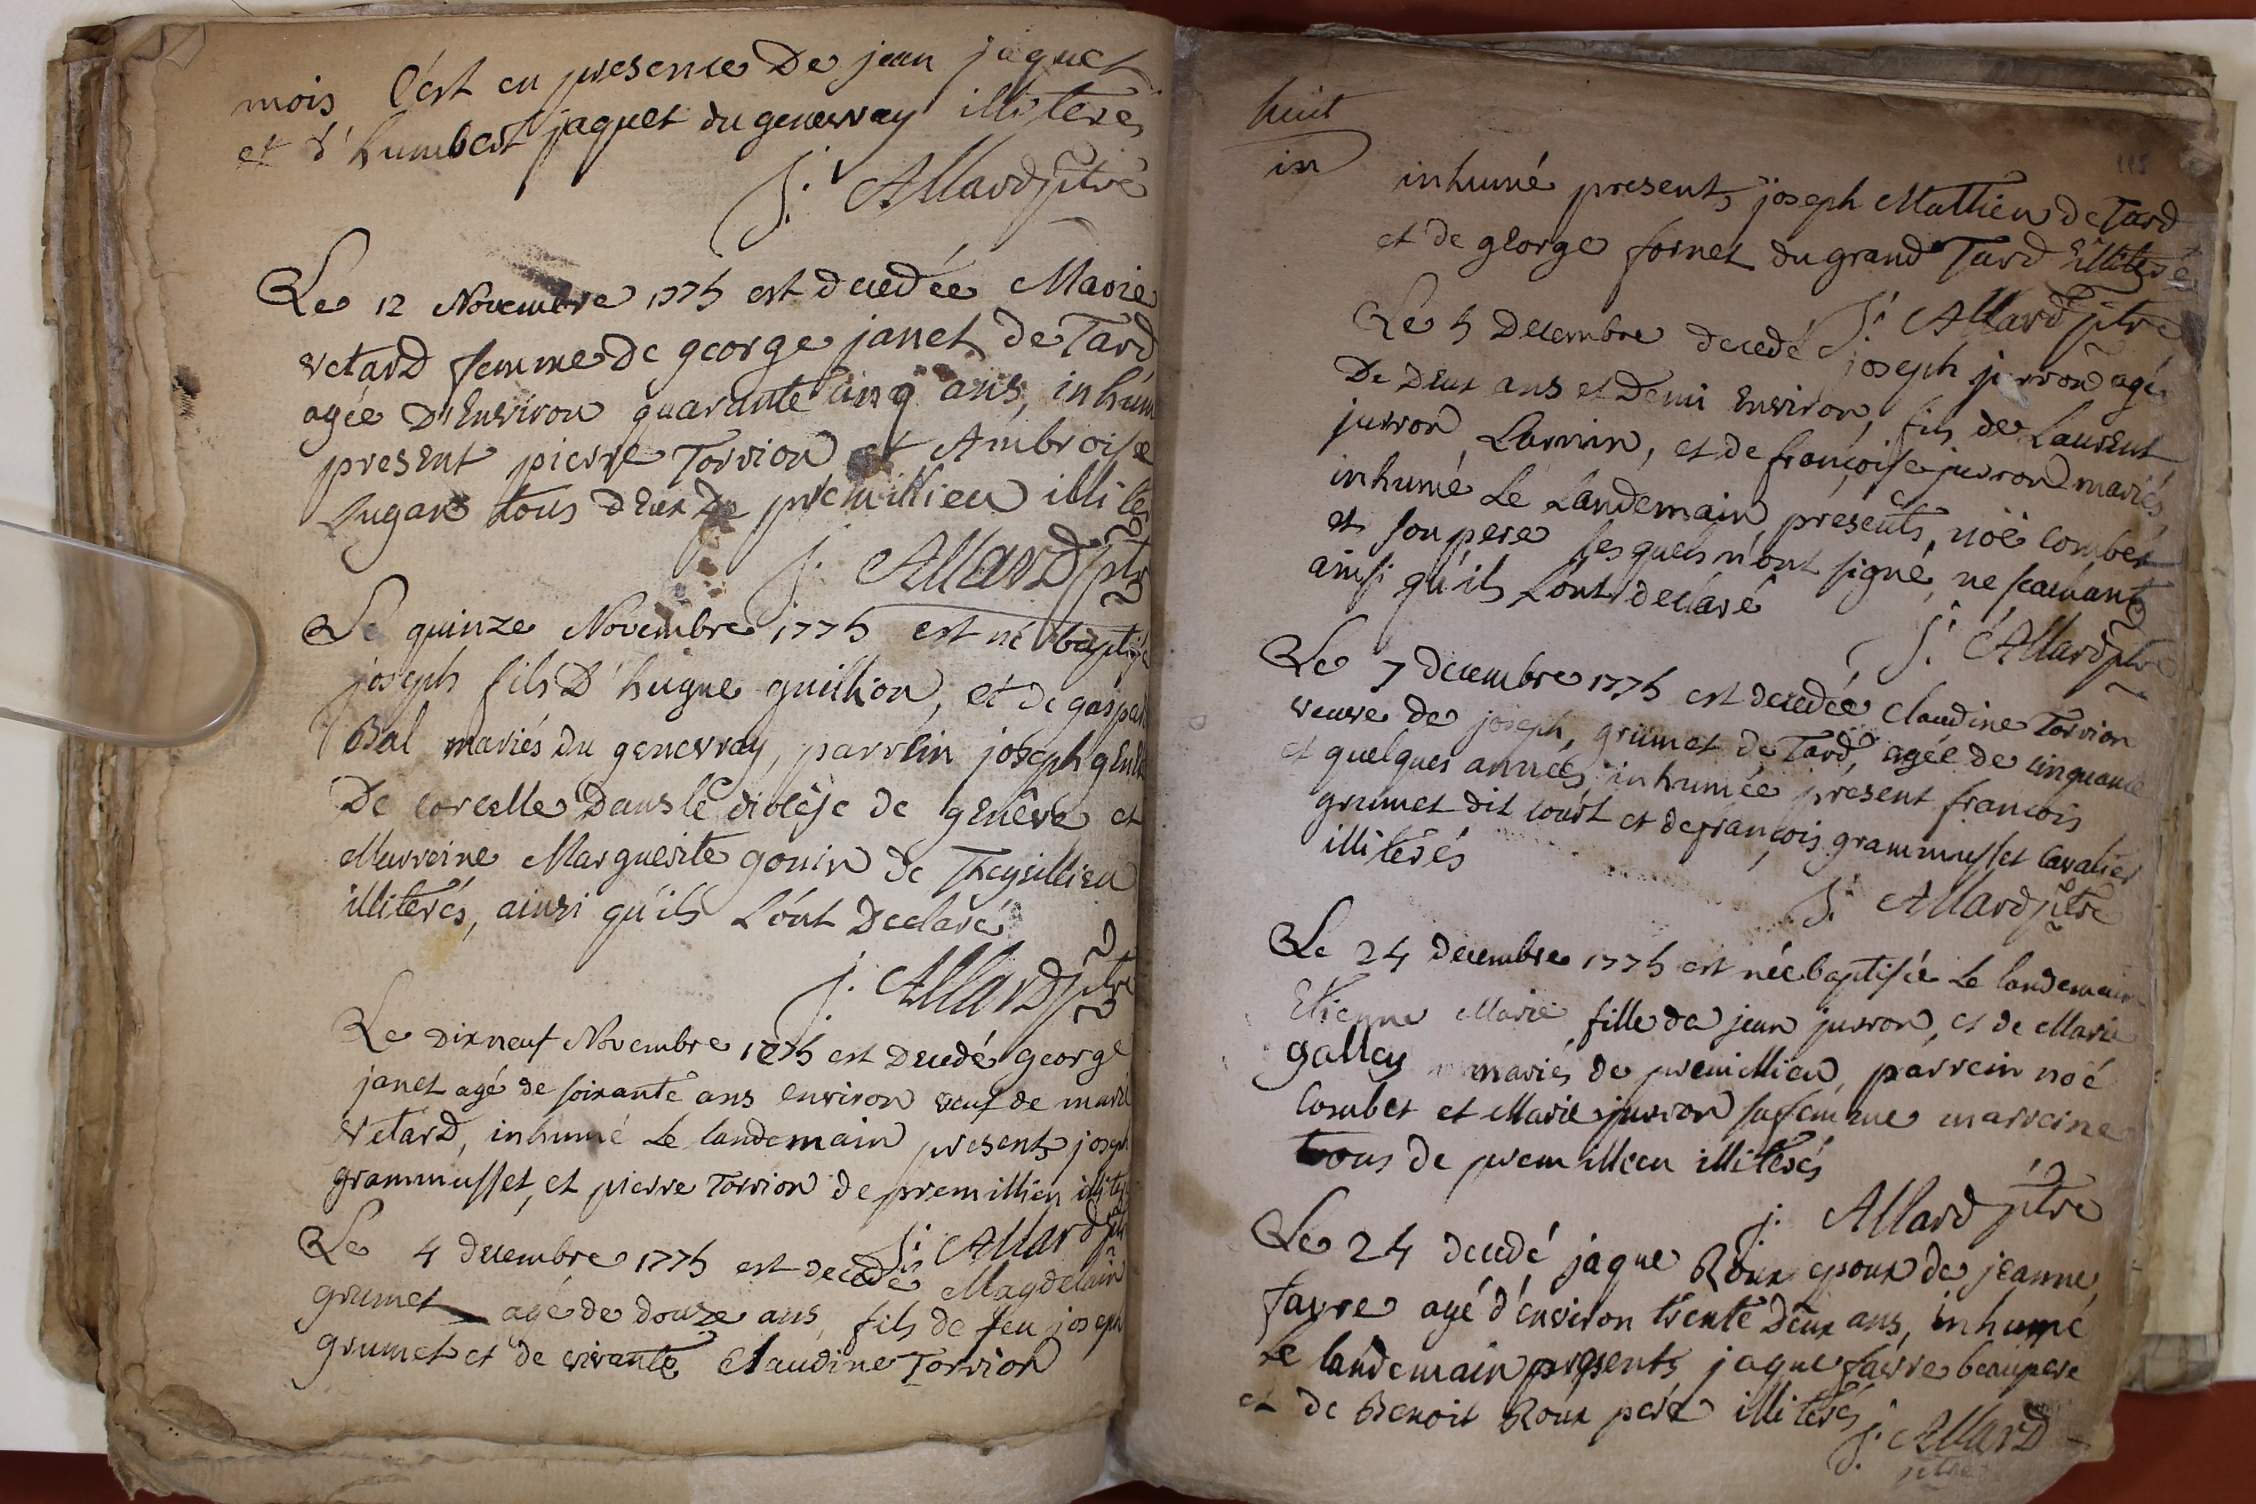 mois, c'est en presence De jean jaquet
et d'humbert jaquet du genevray illiteres
j. Allard ptre
Le 12 Novembre 1775 est decedée Marie
vetard femme de george janet de Tard
agée D'Environ quarante cinq ans, inhum
present pierre Torrion et Ambroise
Lugan tous deux De premillieu illite
j. Allard ptre
Le quinze Novembre 1775 est né baptisé
joseph fils D'hugue guillion, et de gaspar
Bal mariés du genevray, parrein joseph
De corcelle Dans le diocèse de genève et
Marreine Marguerite gonin de Theysillieu
illiterés, ainsi qu'ils L'ont Declaré
j. Allard ptre
Le dix neuf Novembre 1775 est Decedé george
janet agé de soixante ans environ veuf de marie
vetard, inhumé Le landemain presents joseph
grammusset, et pierre Torrion de premillieu illite
j. Allard ptre
Le 4 decembre 1775 est decedé Magdelain
grumet agé de douze ans, fils de feu joseph
grumet et de vivante Claudine Torrion
huit
in
115
inhumé presents joseph Matthieu de Tard
et de george fornet du grand Tard illiteré
j. Allard ptre
Le 5 Decembre decedé joseph juvron agé
De Deux ans et Demi Environ, fils de Laurent
juvron Lamin, et de françoise juvron mariés,
inhumé Le Landemain, présents, nöé combet
et son pere lesquels n'ont signé, ne scachant
ainsi qu'ils L'ont declaré
j. Allard ptre
Le 7 decembre 1775 est decedée Claudine Torrion
veuve de joseph, grumet de Tard, agée de cinquante
et quelques années inhumée présent francois
grumet dit court et de françois grammusset Cavalier
illiterés
j. Allard ptre
Le 24 decembre 1775 est née baptisée Le landemain
Etienne Marie, fille de jean juvron, et de Marie
galley mariés de premillieu, parrein noé
Combet et Marie juvron sa femme marreine
tous de premillieu illiterés
j. Allard ptre
Le 24 decedé jaque Roux epoux de jeanne
favre agé d'environ trente Deux ans, inhumé
Le landemain presents jaque favre beaupere
et de Benoit Roux pere illiterés
j. Allard
ptre